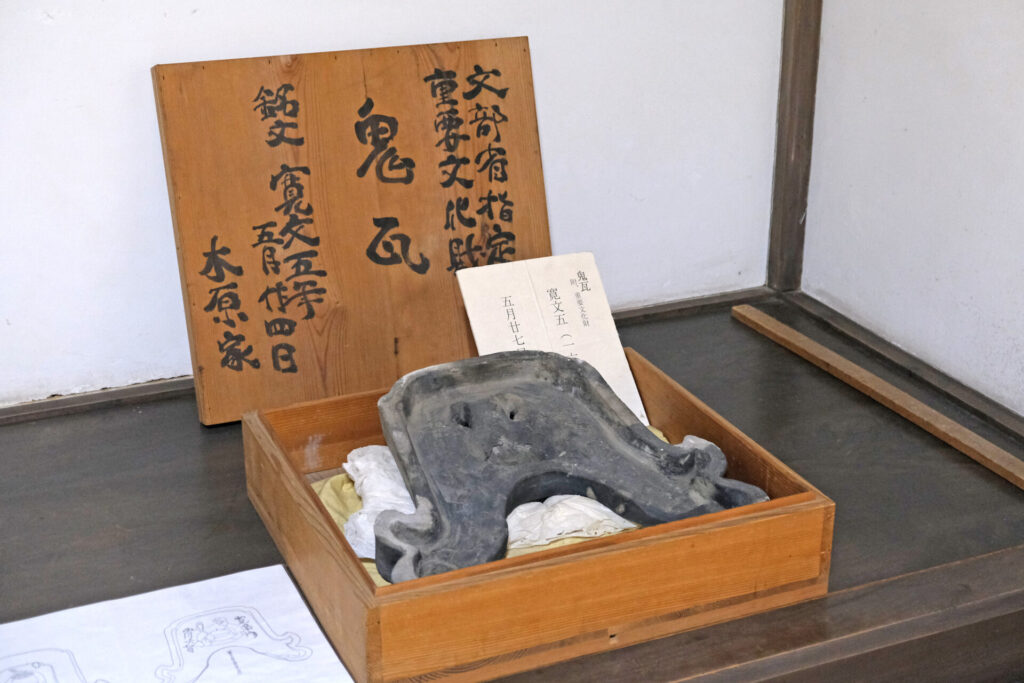 文部省指定
重要文化財
鬼瓦
銘文 寛文五年
五月作四日
木原家
鬼瓦
附 重要文化財
寛文五（一
五月廿七